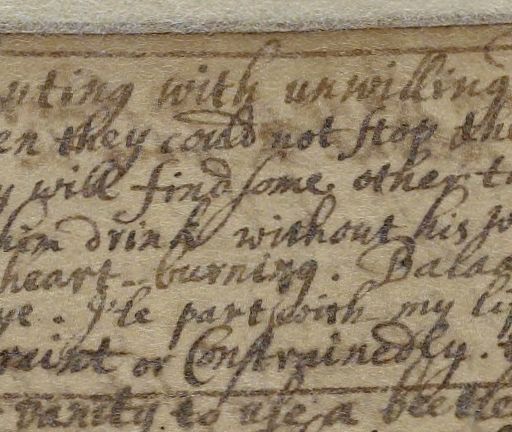 uting with unwilling
en they could not stop the
y will find some other t
him drink without his
heart-burning. Balaa
ye. I'le part with my lif
raint or Constrainedly.
vanity to use a beetle